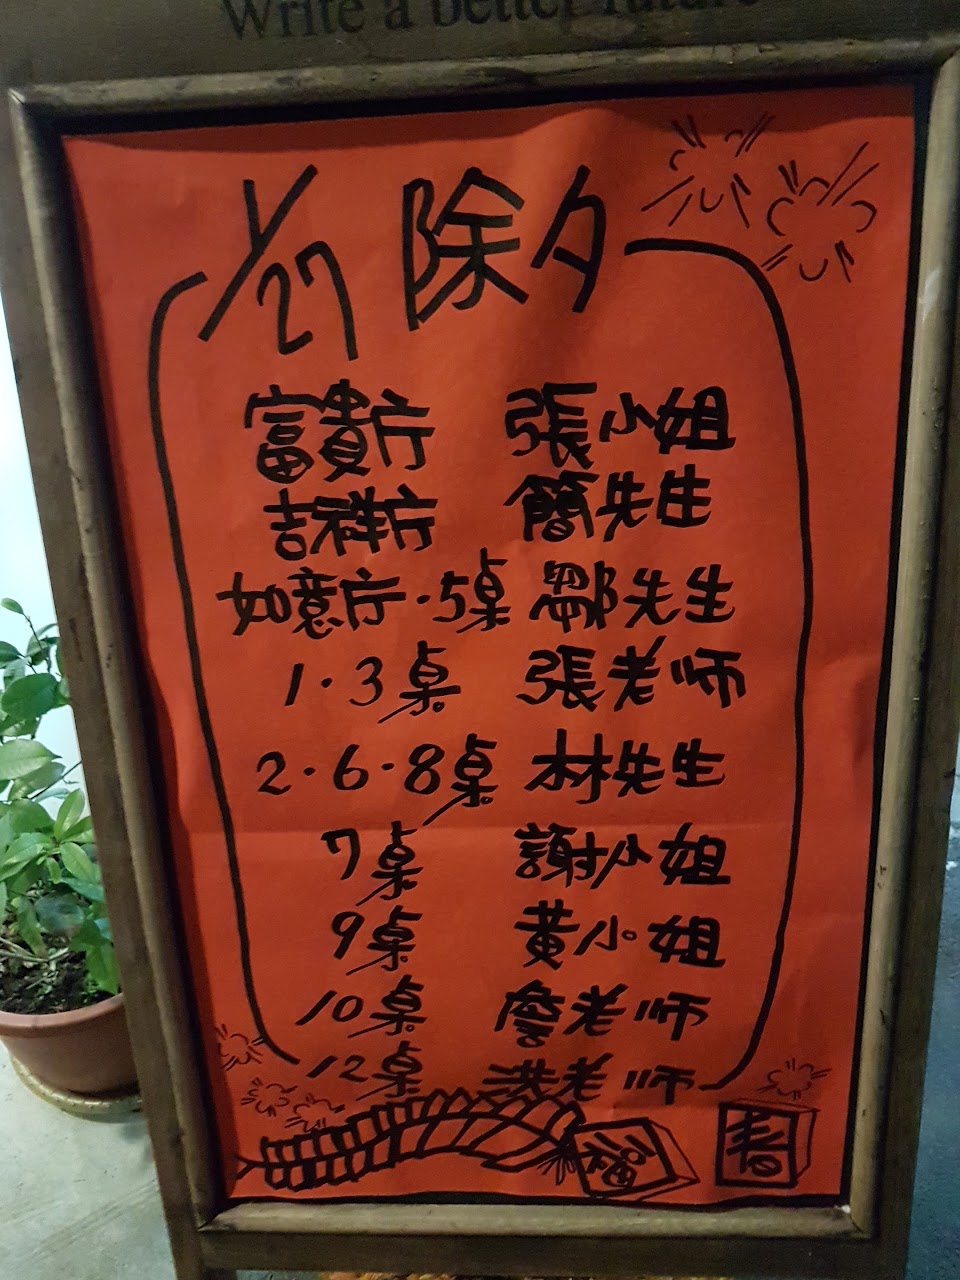 Write a better future
1/27 除夕
富貴庁 張小姐
吉祥庁 簡先生
如意庁·5桌 鄒先生
1·3桌 張老师
2·6·8桌 林先生
7桌 謝小姐
9桌 黃小姐
10桌 詹老师
12桌 洪老师
福
春